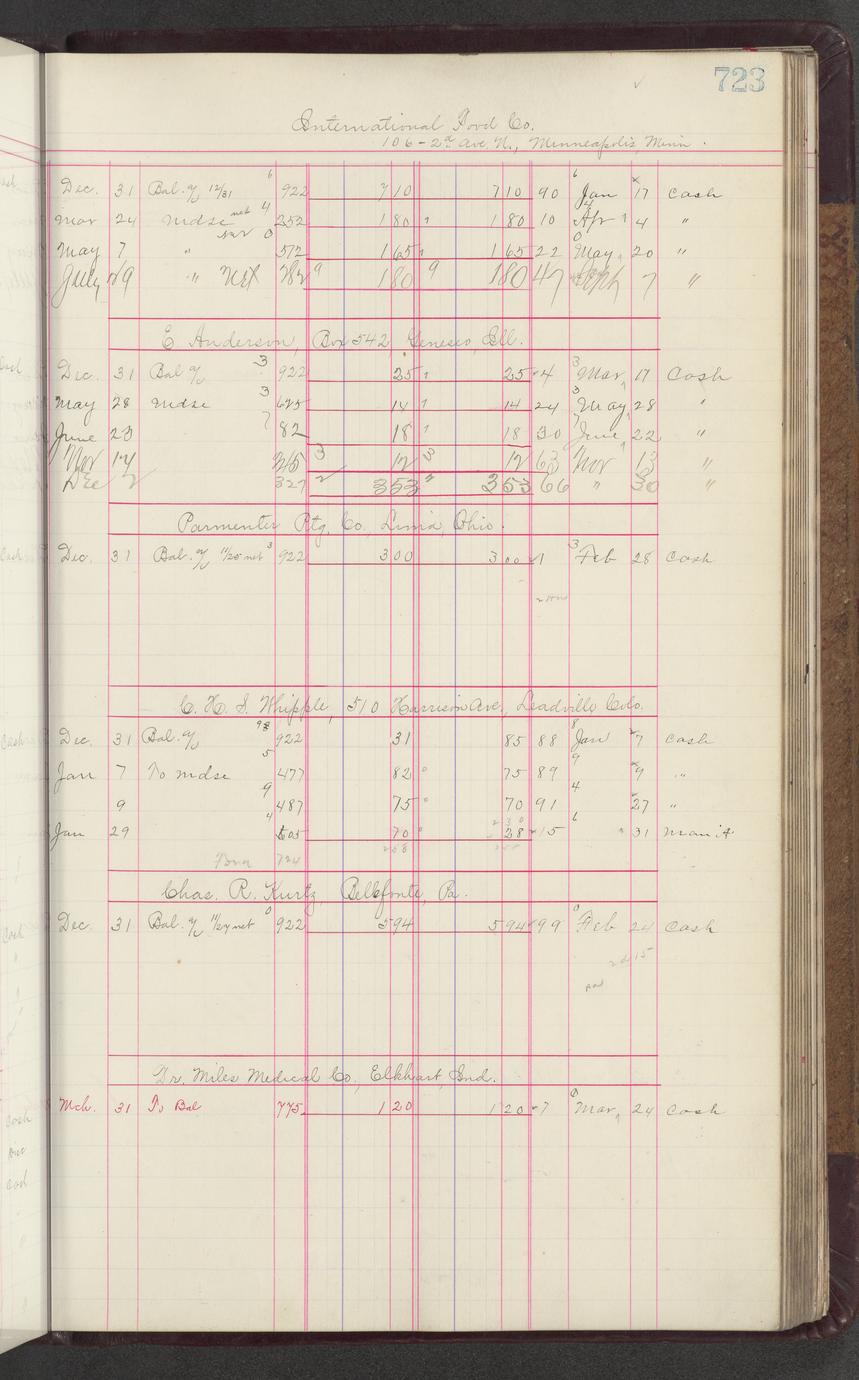 723
International Food Co.
106-2d Ave. N., Minneapolis, Minn.
Dec. 31 Bal. 12/31 6 922 710 710 90 6 Jan 17 Cash
Mar 24 Mdse net 4 252 180 180 10 4 Apr 4 "
May 7 " 0 572 165 165 22 0 May 20 "
July 29 " Net 9 180 9 180 47 Sept 7 "
E Anderson, Box 542, Geneseo, Ill.
Dec. 31 Bal 3 922 25 25 4 3 Mar 17 Cash
May 28 Mdse 3 625 14 14 24 3 May 28 "
June 23 7 82 18 18 30 7 June 22 "
Nov 14 215 3 12 3 12 63 Nov 13 "
Dec 2 327 2 353 " 353 66 " 30 "
Parmenter Ptg. Co., Lima, Ohio.
Dec. 31 Bal. 11/25 net 3 922 300 300 1 3 Feb 28 Cash
C. H. S. Whipple, 510 Harrison Ave., Leadville Colo.
Dec. 31 Bal. 98 922 31 85 88 8 Jan 7 Cash
Jan 7 To mdse 5 477 82 75 89 9 9 "
9 9 487 75 70 91 4 27 "
Jan 29 4 505 70 230 28 15 6 31 Manit
258 724
Chas. R. Kurtz, Bellefonte, Pa.
Dec. 31 Bal. 11/27 net 0 922 594 594 99 0 Feb 24 Cash
Dr. Miles Medical Co., Elkhart, Ind.
Mch. 31 To Bal 775 120 120 7 Mar 24 Cash